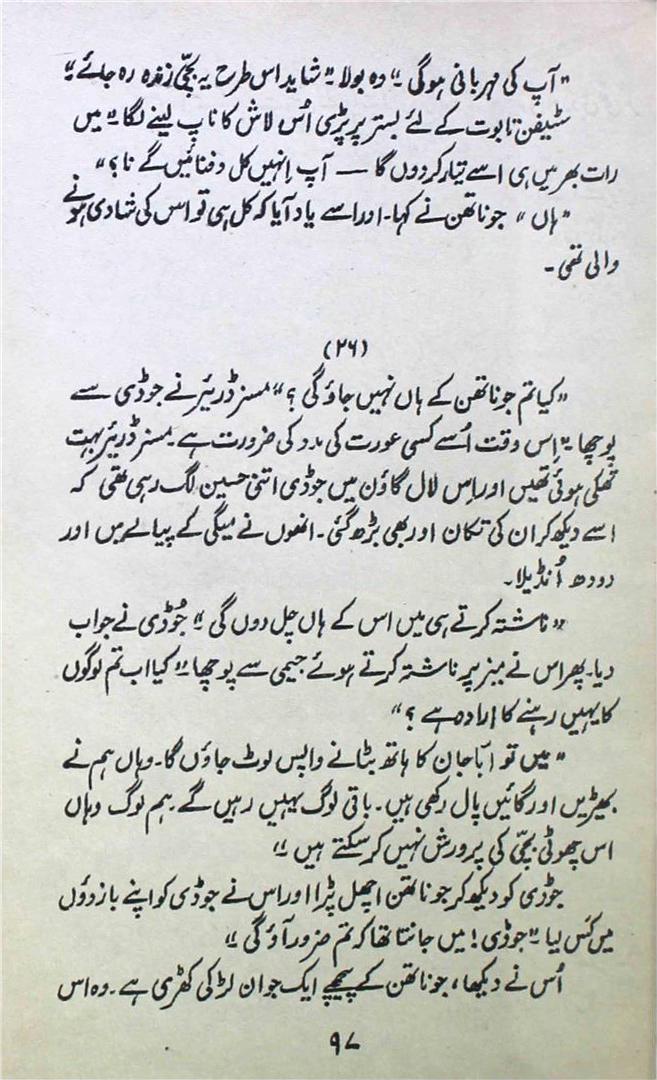 "آپ کی مہربانی ہوگی۔" وہ بولا۔ "شاید اس طرح یہ بچّی زندہ رہ جائے۔"
سٹیفن تابوت کے لئے بستر پر پڑی اُس لاش کا ناپ لینے لگا۔ "میں
رات بھر میں ہی اسے تیار کردوں گا — آپ اِنہیں کل دفنائیں گے نا؟"
"ہاں" جوناتھن نے کہا۔ اور اسے یاد آیا کہ کل ہی تو اس کی شادی ہونے
والی تھی۔
(۲۶)
"کیا تم جوناتھن کے ہاں نہیں جاؤ گی؟" مسز ڈریئر نے جوڈی سے
پوچھا۔ "اِس وقت اُسے کسی عورت کی مدد کی ضرورت ہے۔ مسز ڈریئر بہت
تھکی ہوئی تھیں اور اِس لال گاؤن میں جوڈی اتنی حسین لگ رہی تھی کہ
اسے دیکھ کر ان کی تکان اور بھی بڑھ گئی۔ انھوں نے میگی کے پیالے میں اور
دودھ اُنڈیلا۔
"ناشتہ کرتے ہی میں اس کے ہاں چل دوں گی۔" جُوڈی نے جواب
دیا۔ پھر اس نے میز پر ناشتہ کرتے ہوئے جیمی سے پوچھا۔ "کیا اب تم لوگوں
کا یہیں رہنے کا اِرادہ ہے؟"
"میں تو اباّجان کا ہاتھ بٹانے واپس لوٹ جاؤں گا۔ وہاں ہم نے
بھیڑیں اور گائیں پال رکھی ہیں۔ باقی لوگ یہیں رہیں گے۔ ہم لوگ وہاں
اس چھوٹی بچّی کی پرورش نہیں کر سکتے ہیں۔"
جوڈی کو دیکھ کر جوناتھن اچھل پڑا اور اس نے جوڈی کو اپنے بازوؤں
میں کس لیا۔ "جوڈی! میں جانتا تھا کہ تم ضرور آؤ گی۔"
اُس نے دیکھا، جوناتھن کے پیچھے ایک جوان لڑکی کھڑی ہے۔ وہ اس
۹۷